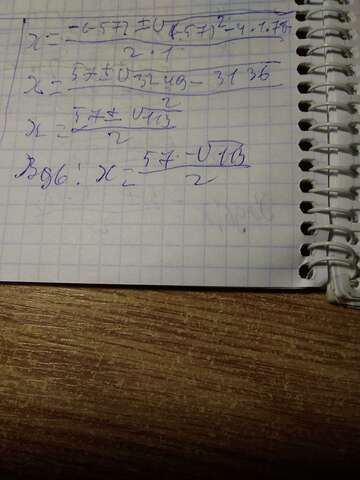 x = -(-57) ± √(-57)² - 4·1·784 / 2·1
x = 57 ± √3249 - 3136 / 2
x = 57 ± √113 / 2
Вдб: x = 57 - √113 / 2